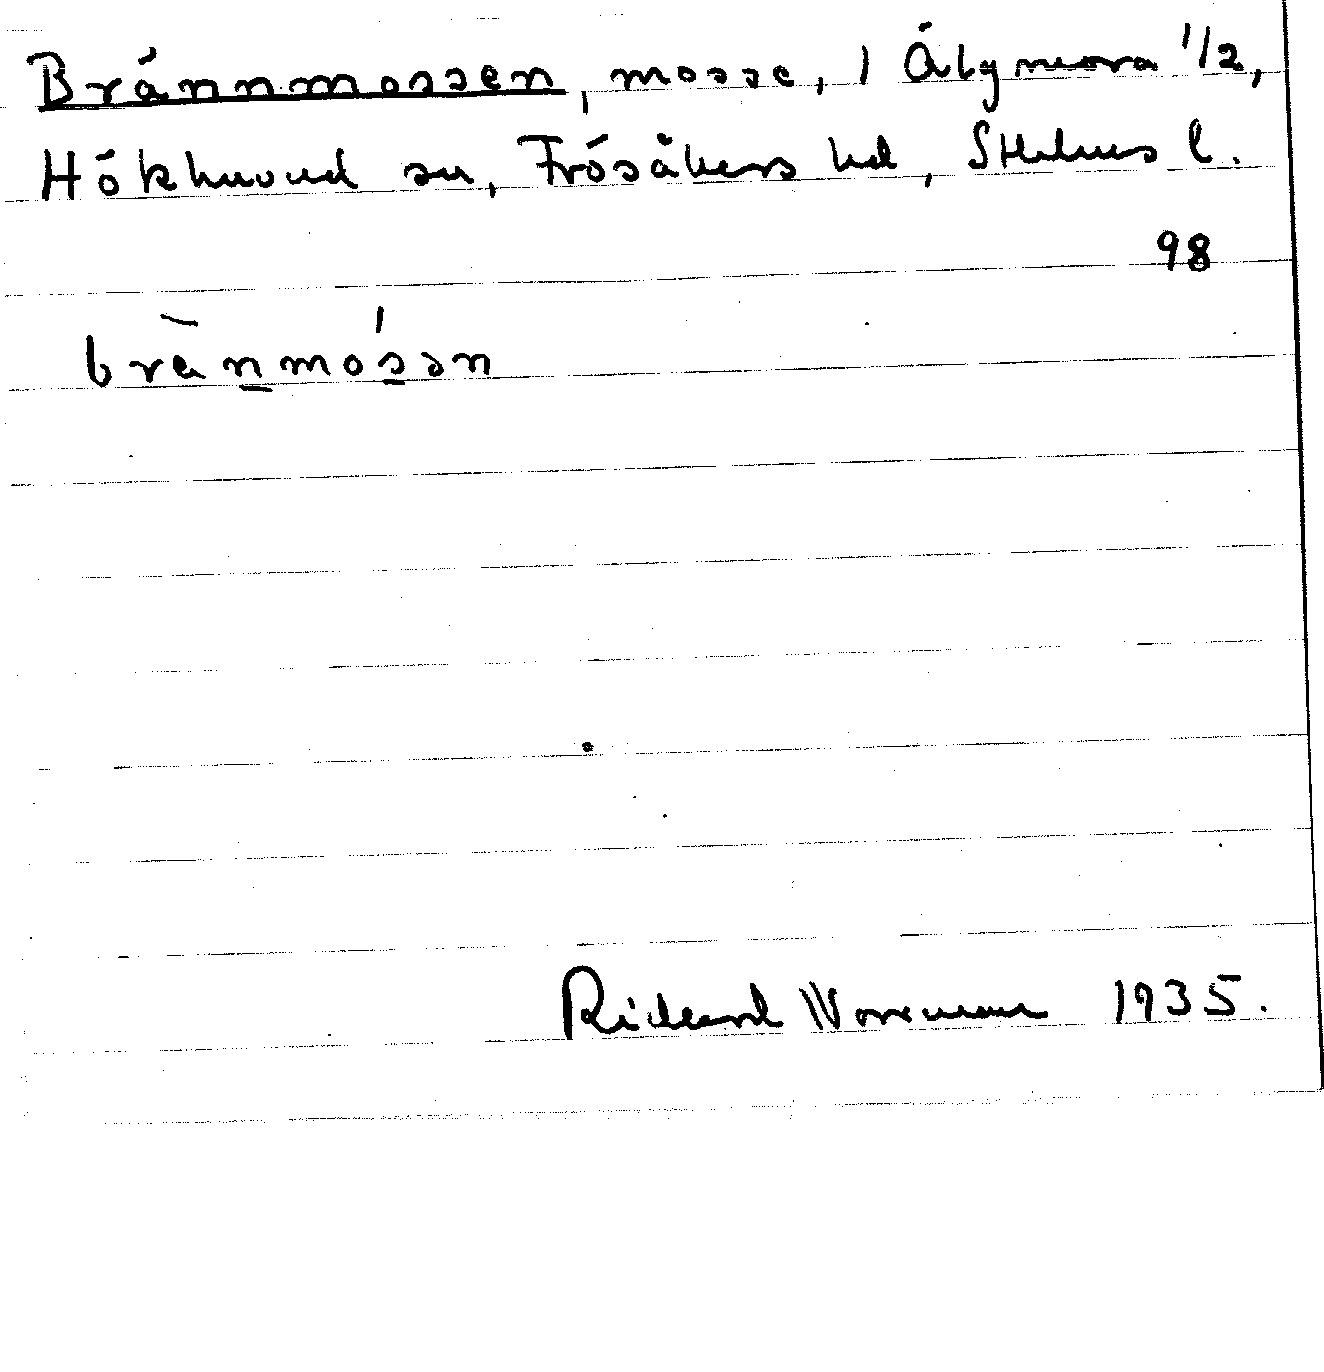 Brännmossen, mosse, 1 Älgmora 1/2,
Hökhuvud sn, Frösåkers hd, Sthlms l.
98
brànmósən
Richard Norrman 1935.